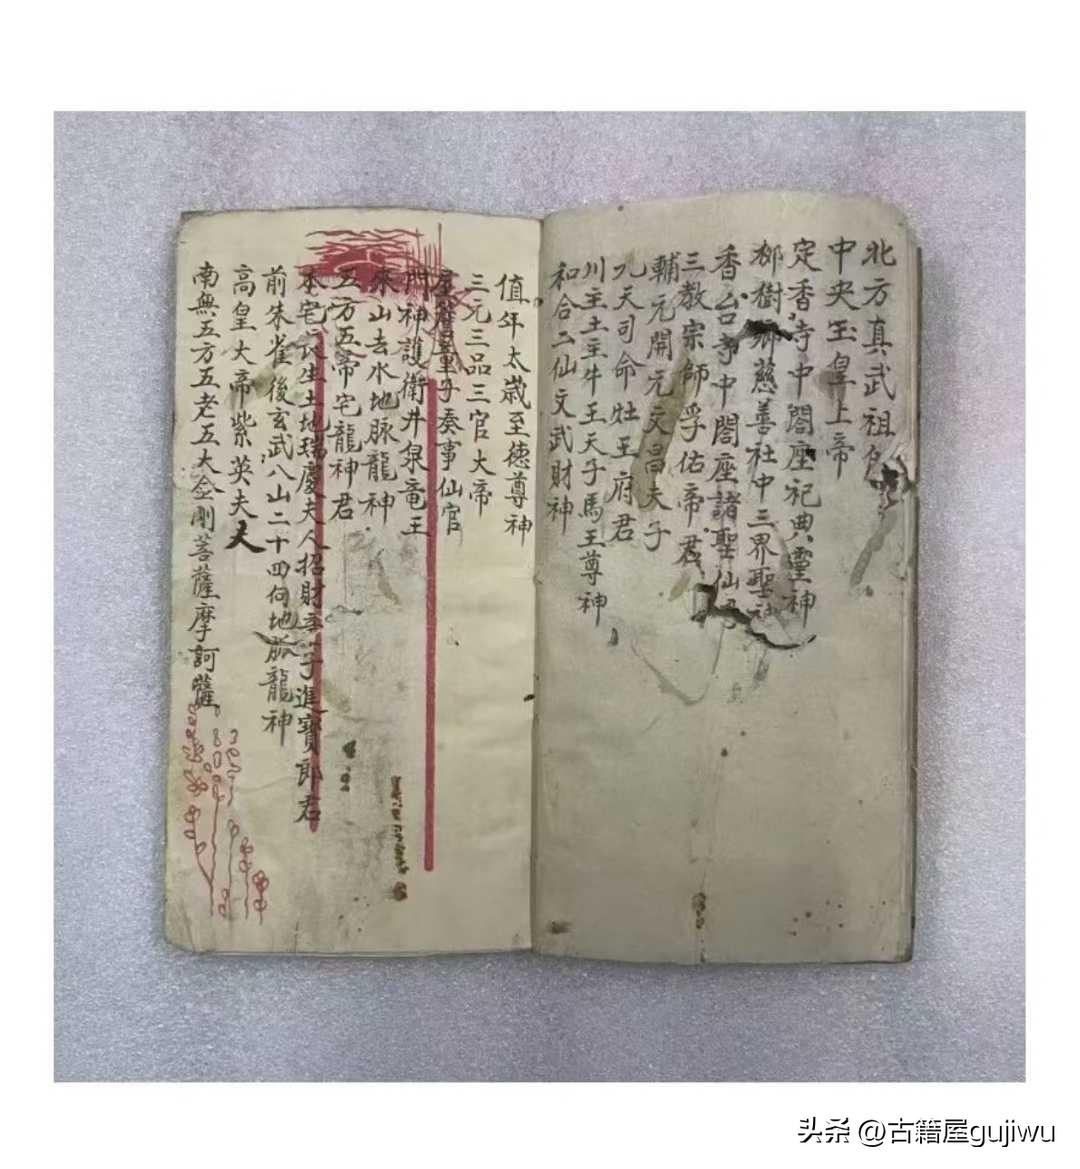 北方真武祖
中央玉皇上帝
定香寺中閤座祀典靈神
梛樹鄉慈善社中三界聖
香台寺中閤座諸聖仙
三教宗師孚佑帝君
輔元開元文昌夫子
九天司命灶王府君
川主土主牛王天子馬王尊神
和合二仙文武財神
值年太歲至德尊神
三元三品三官大帝
童子奏事仙官
門神護衛井泉竜王
來山去水地脉龍神
五方五帝宅龍神君
本宅長生土地瑞慶夫人招財童子進寶郎君
前朱雀後玄武八山二十四向地脈龍神
高皇大帝紫英夫人
南無五方五老五大金剛菩薩摩訶薩
头条 @古籍屋gujiwu